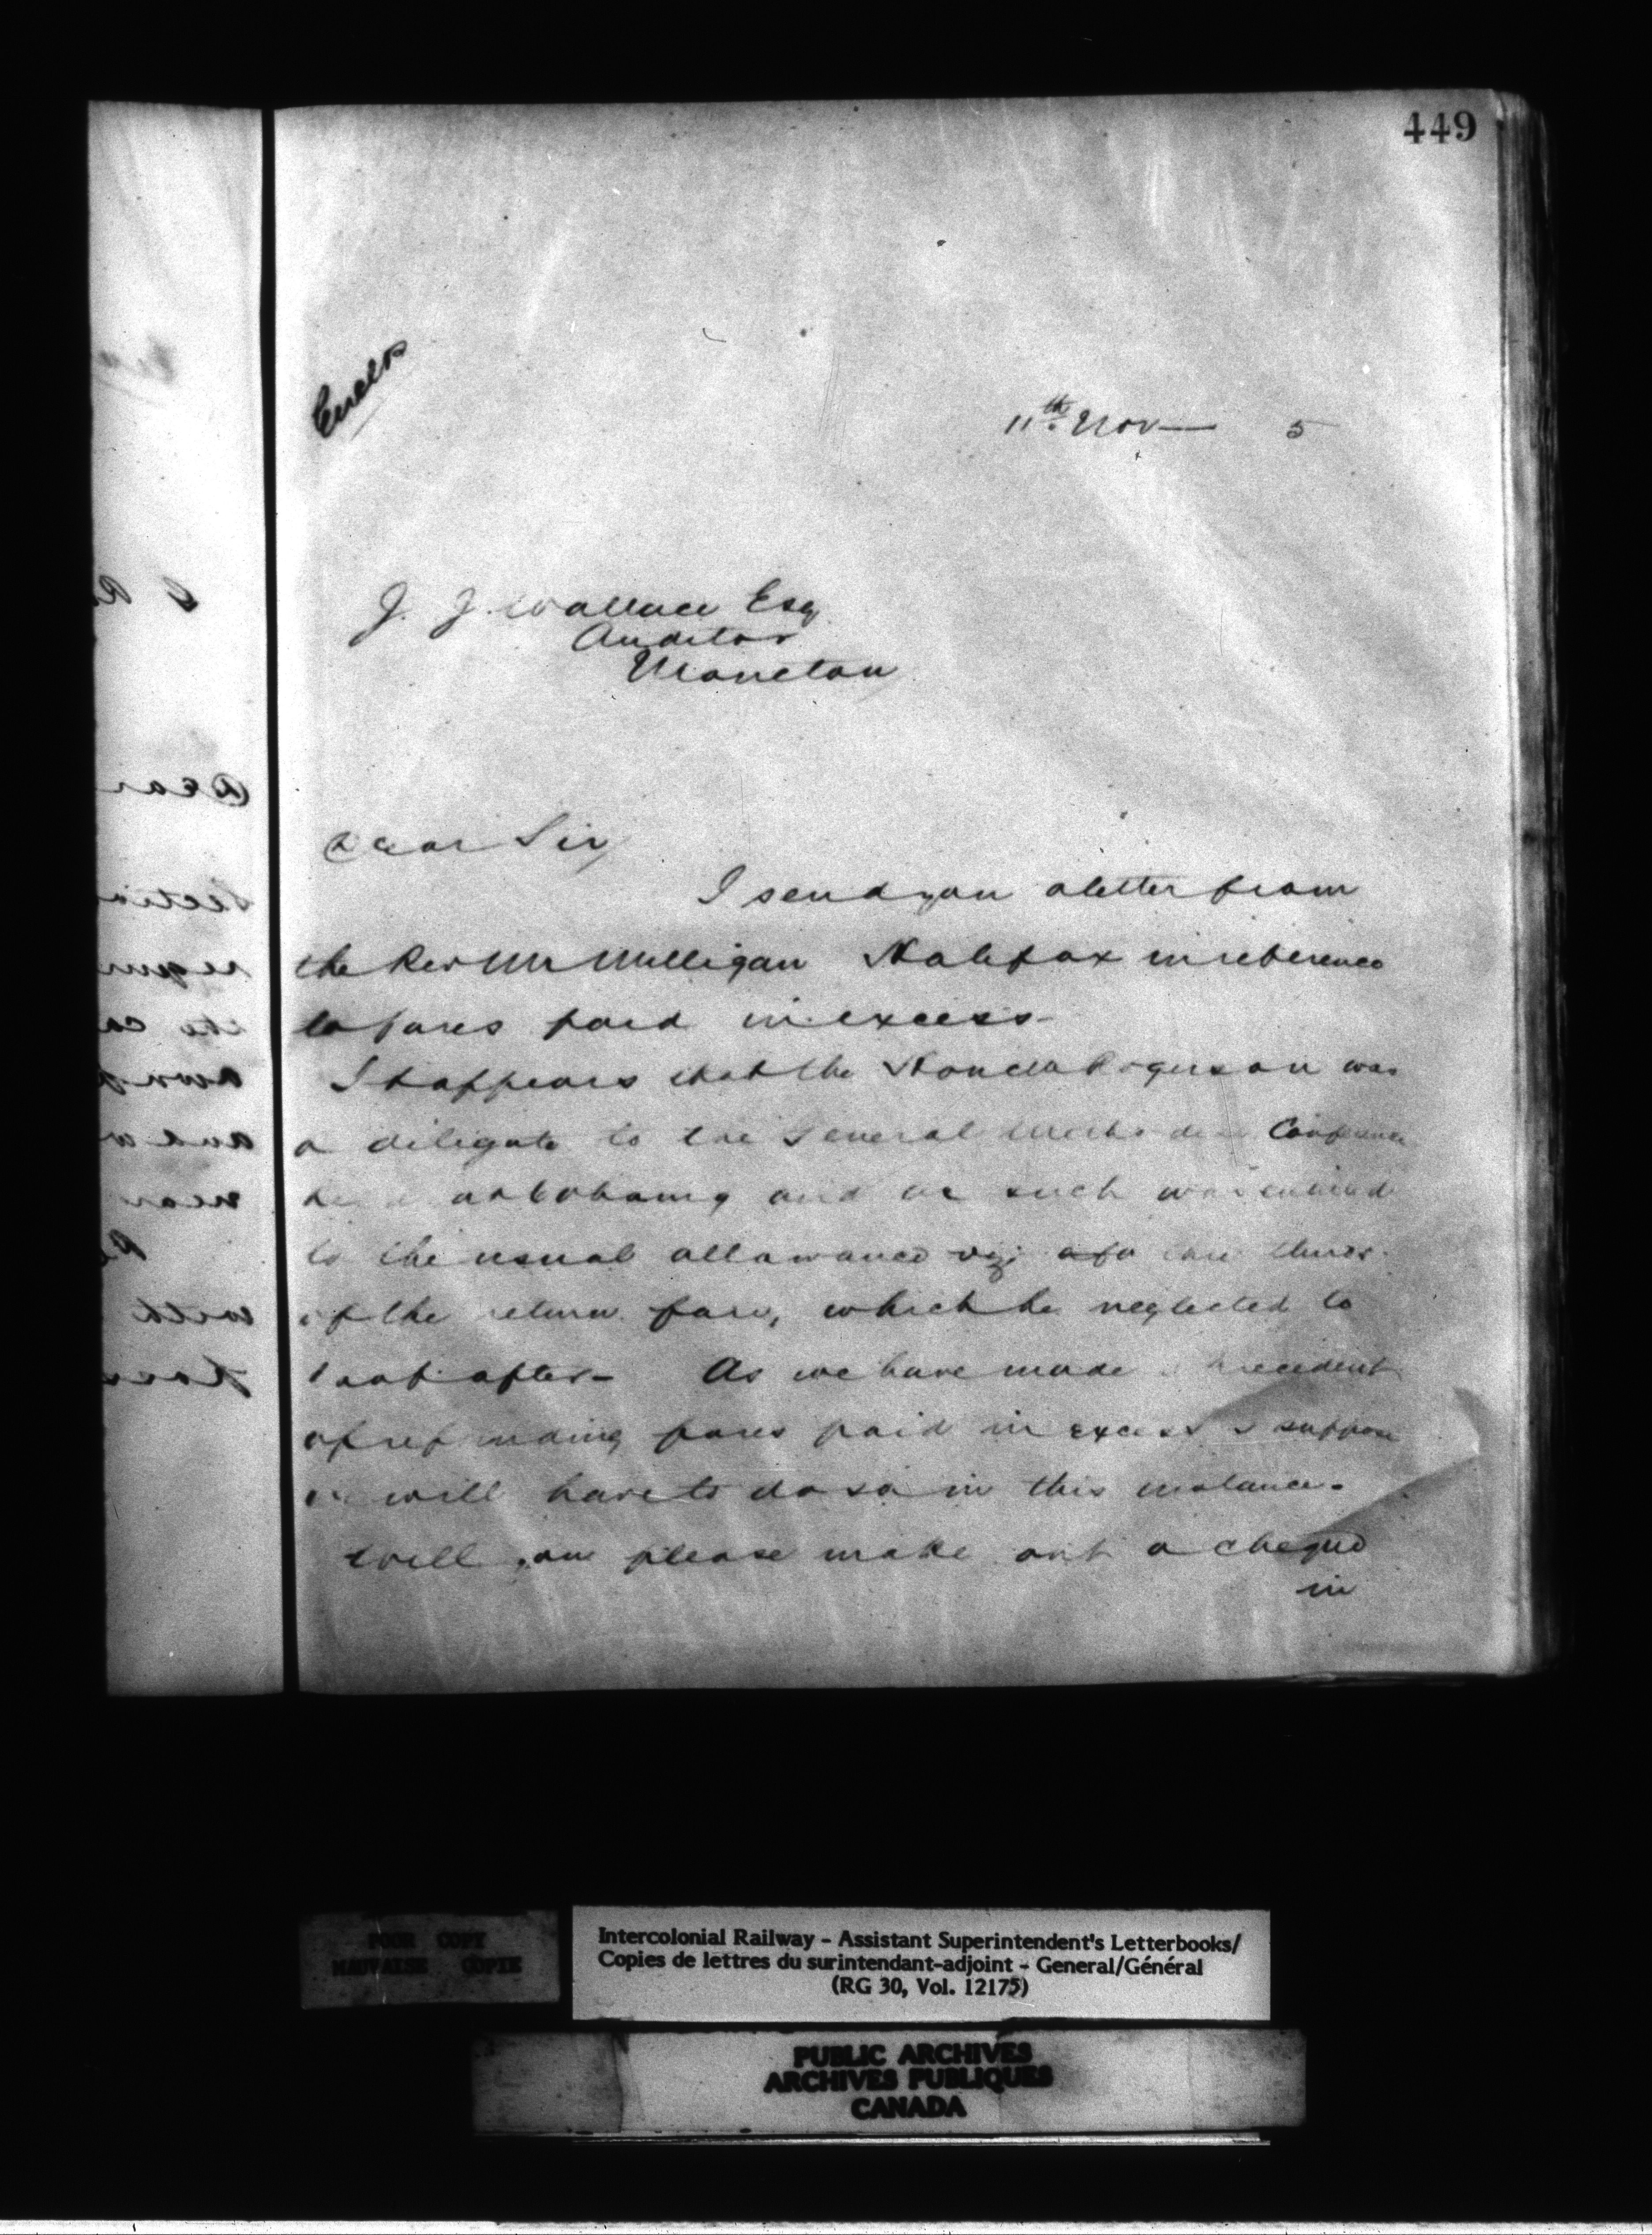 449
Encls
11th Nov — 5
J. J. Wallace Esq
Auditor
Moncton
Dear Sir
I send you a letter from
the Rev Mr Milligan Halifax in reference
to fares paid in excess -
It appears that the Rogerson was
a diligate to the General Conference
at Cobourg and as such was entitled
to the usual allowance viz: thirds
of the return fare, which he neglected to
look after - As we have made a precedent
of refunding fares paid in excess I suppose
we will have to do so in this instance.
Will you please make out a cheque
in
POOR COPY
MAUVAISE COPIE
Intercolonial Railway - Assistant Superintendent's Letterbooks/
Copies de lettres du surintendant-adjoint - General/Général
(RG 30, Vol. 12175)
PUBLIC ARCHIVES
ARCHIVES PUBLIQUES
CANADA